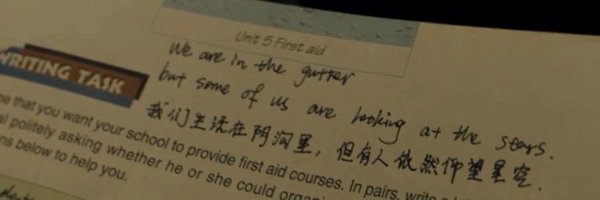 Unit 5 First aid
We are in the gutter
but some of us are looking at the stars.
我们生活在阴沟里，但有人依然仰望星空.
WRITING TASK
ne that you want your school to provide first aid courses. In pairs, write a
al politely asking whether he or she could orga
ns below to help you.